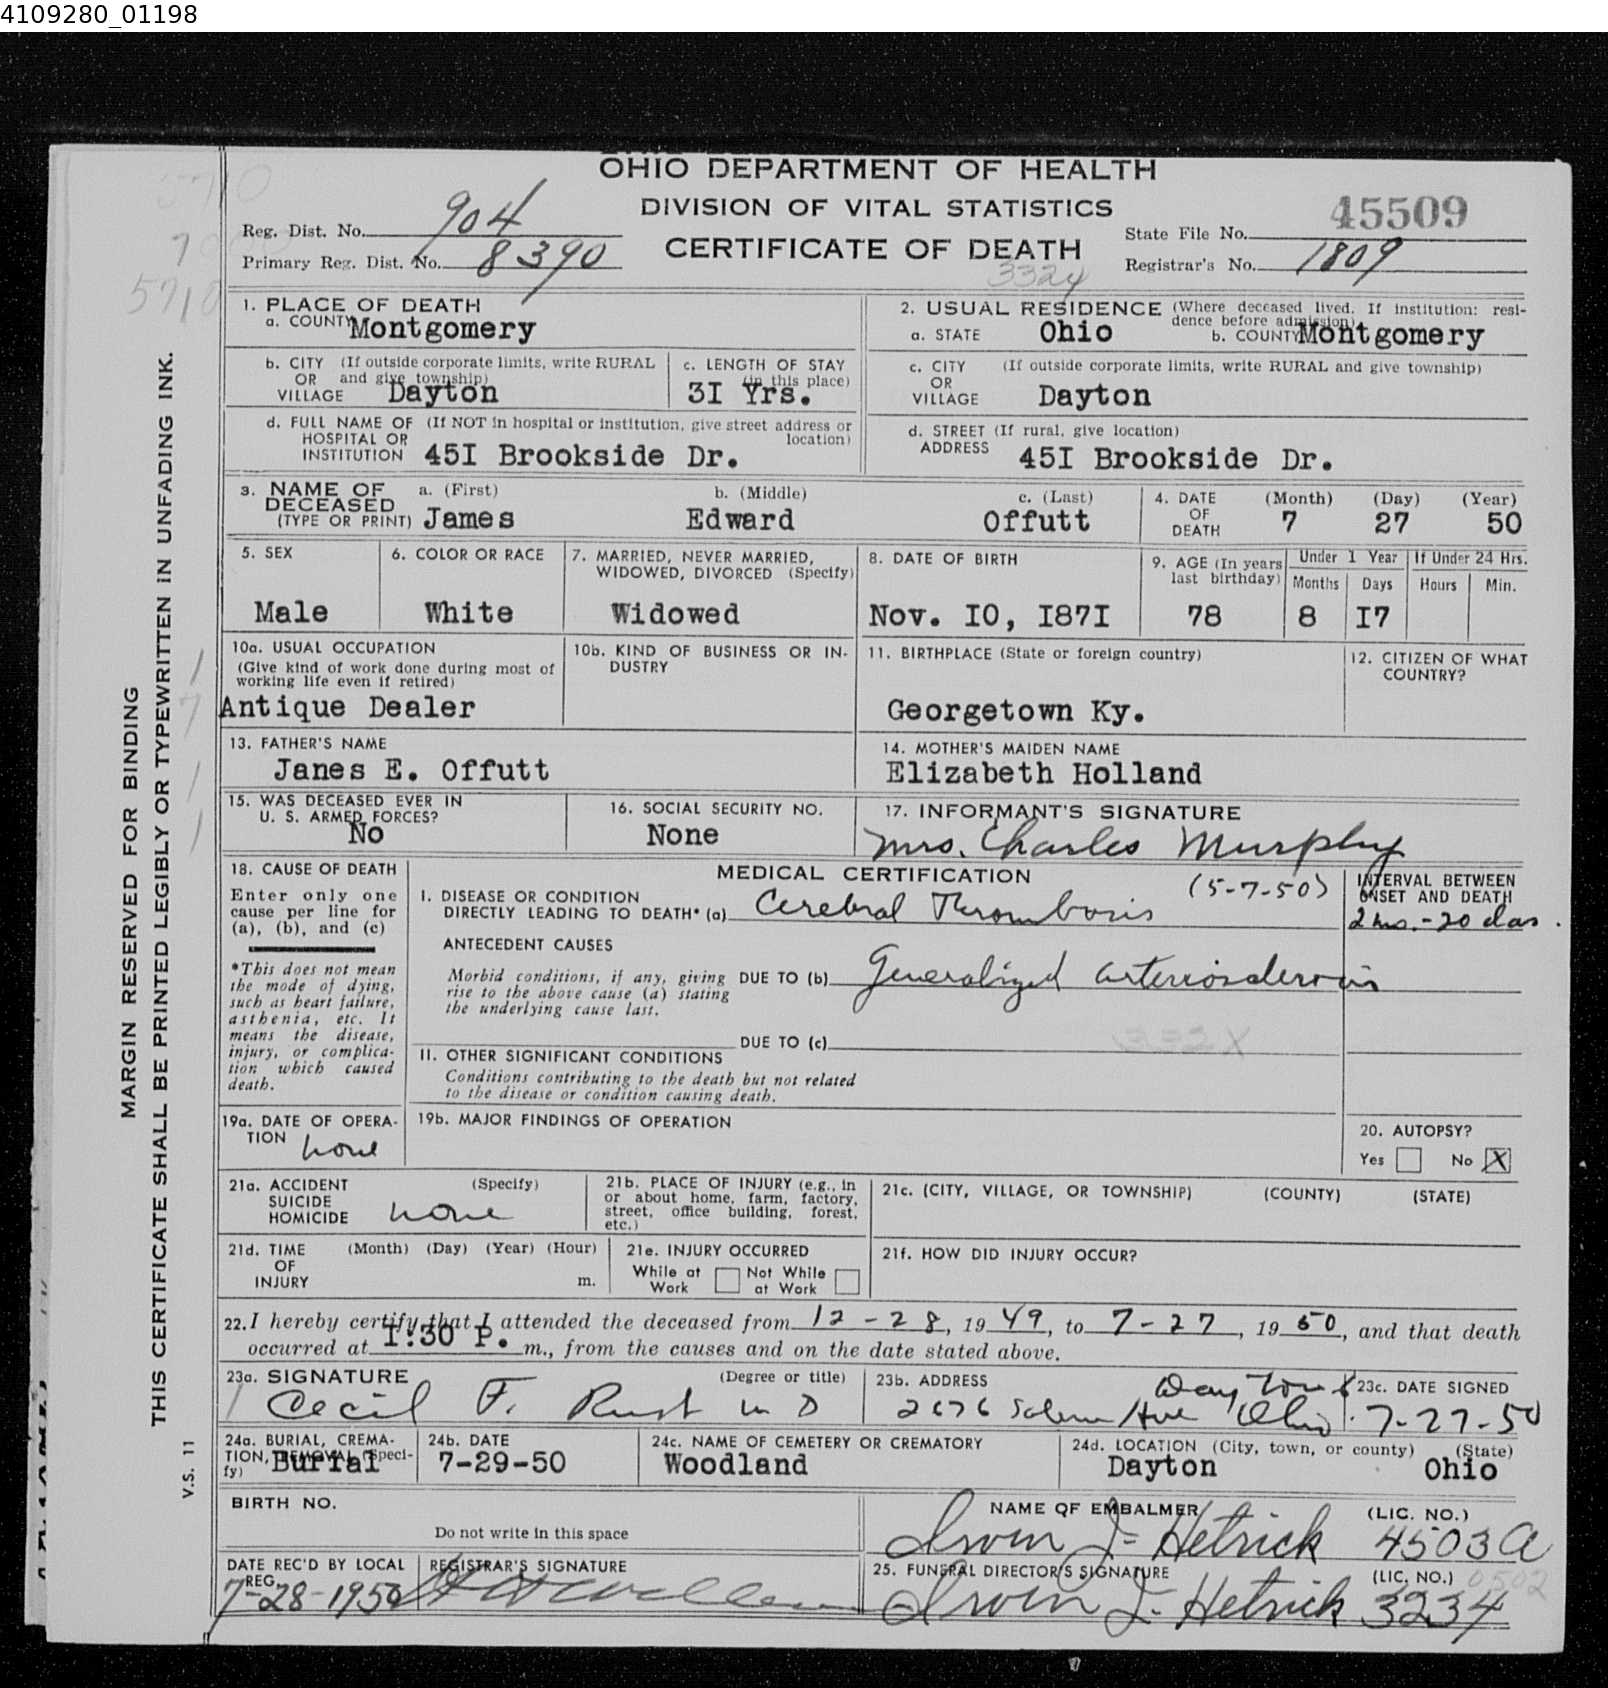 4109280_01198
OHIO DEPARTMENT OF HEALTH
DIVISION OF VITAL STATISTICS
CERTIFICATE OF DEATH
Reg. Dist. No. 904
Primary Reg. Dist. No. 8390
45509
State File No.
Registrar's No. 1809
3324
5710
MARGIN RESERVED FOR BINDING
THIS CERTIFICATE SHALL BE PRINTED LEGIBLY OR TYPEWRITTEN IN UNFADING INK.
V.S. 11
1. PLACE OF DEATH
a. COUNTY Montgomery
b. CITY (If outside corporate limits, write RURAL
OR and give township)
VILLAGE Dayton
c. LENGTH OF STAY
(in this place)
3I Yrs.
d. FULL NAME OF (If NOT in hospital or institution, give street address or
HOSPITAL OR location)
INSTITUTION 45I Brookside Dr.
2. USUAL RESIDENCE (Where deceased lived. If institution: resi-
dence before admission)
a. STATE Ohio b. COUNTY Montgomery
c. CITY (If outside corporate limits, write RURAL and give township)
OR
VILLAGE Dayton
d. STREET (If rural, give location)
ADDRESS 45I Brookside Dr.
3. NAME OF a. (First) b. (Middle) c. (Last)
DECEASED
(TYPE OR PRINT) James Edward Offutt
4. DATE (Month) (Day) (Year)
OF
DEATH 7 27 50
5. SEX
Male
6. COLOR OR RACE
White
7. MARRIED, NEVER MARRIED,
WIDOWED, DIVORCED (Specify)
Widowed
8. DATE OF BIRTH
Nov. I0, I87I
9. AGE (In years
last birthday)
78
Under 1 Year
Months Days
8 I7
If Under 24 Hrs.
Hours Min.
10a. USUAL OCCUPATION
(Give kind of work done during most of
working life even if retired)
Antique Dealer
10b. KIND OF BUSINESS OR IN-
DUSTRY
11. BIRTHPLACE (State or foreign country)
Georgetown Ky.
12. CITIZEN OF WHAT
COUNTRY?
13. FATHER'S NAME
Janes E. Offutt
14. MOTHER'S MAIDEN NAME
Elizabeth Holland
15. WAS DECEASED EVER IN
U. S. ARMED FORCES?
No
16. SOCIAL SECURITY NO.
None
17. INFORMANT'S SIGNATURE
Mrs. Charles Murphy
18. CAUSE OF DEATH
Enter only one
cause per line for
(a), (b), and (c)
*This does not mean
the mode of dying,
such as heart failure,
asthenia, etc. It
means the disease,
injury, or complica-
tion which caused
death.
MEDICAL CERTIFICATION
I. DISEASE OR CONDITION (5-7-50)
DIRECTLY LEADING TO DEATH* (a) Cerebral Thrombosis
INTERVAL BETWEEN
ONSET AND DEATH
2 mo. - 20 das.
ANTECEDENT CAUSES
Morbid conditions, if any, giving
rise to the above cause (a) stating
the underlying cause last.
DUE TO (b) Generalized arteriosclerosis
DUE TO (c)
332X
II. OTHER SIGNIFICANT CONDITIONS
Conditions contributing to the death but not related
to the disease or condition causing death.
19a. DATE OF OPERA-
TION none
19b. MAJOR FINDINGS OF OPERATION
20. AUTOPSY?
Yes No X
21a. ACCIDENT (Specify)
SUICIDE
HOMICIDE none
21b. PLACE OF INJURY (e.g., in
or about home, farm, factory,
street, office building, forest,
etc.)
21c. (CITY, VILLAGE, OR TOWNSHIP) (COUNTY) (STATE)
21d. TIME (Month) (Day) (Year) (Hour)
OF
INJURY m.
21e. INJURY OCCURRED
While at Not While
Work at Work
21f. HOW DID INJURY OCCUR?
22. I hereby certify that I attended the deceased from 12-28, 1949, to 7-27, 1950, and that death
occurred at I:30 P. m., from the causes and on the date stated above.
23a. SIGNATURE (Degree or title)
Cecil F. Rust MD
23b. ADDRESS
2676 Salem Ave Dayton Ohio
23c. DATE SIGNED
7-27-50
24a. BURIAL, CREMA-
TION, REMOVAL (Speci-
fy) Burial
24b. DATE
7-29-50
24c. NAME OF CEMETERY OR CREMATORY
Woodland
24d. LOCATION (City, town, or county) (State)
Dayton Ohio
BIRTH NO.
Do not write in this space
NAME OF EMBALMER (LIC. NO.)
Irvin J. Hetrick 4503A
DATE REC'D BY LOCAL
REG.
7-28-1950
REGISTRAR'S SIGNATURE
25. FUNERAL DIRECTOR'S SIGNATURE (LIC. NO.)
Irvin J. Hetrick 3234